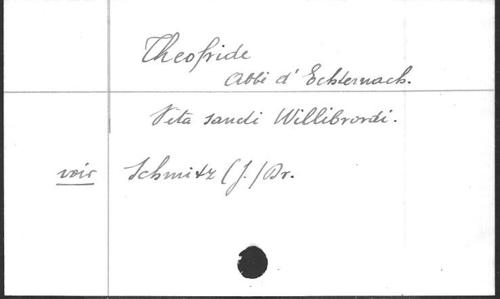 Theofride
Abbé d'Echternach.
Vita sancti Willibrordi.
voir Schmitz (J.) Dr.